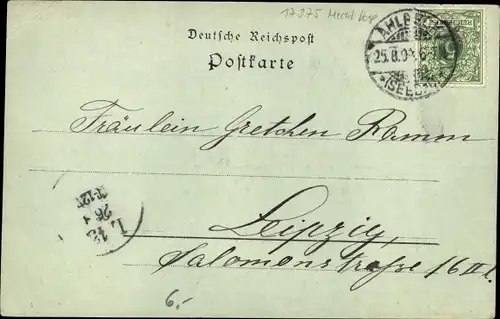 17375 Meckl Vorp
Deutsche Reichspost
Postkarte
AHLBECK
25.8.9
(SEEBAD)
Fräulein Gretchen Ramm
Leipzig,
Salomonstraße 16 III.
L. 13
26
8-12V
6.-